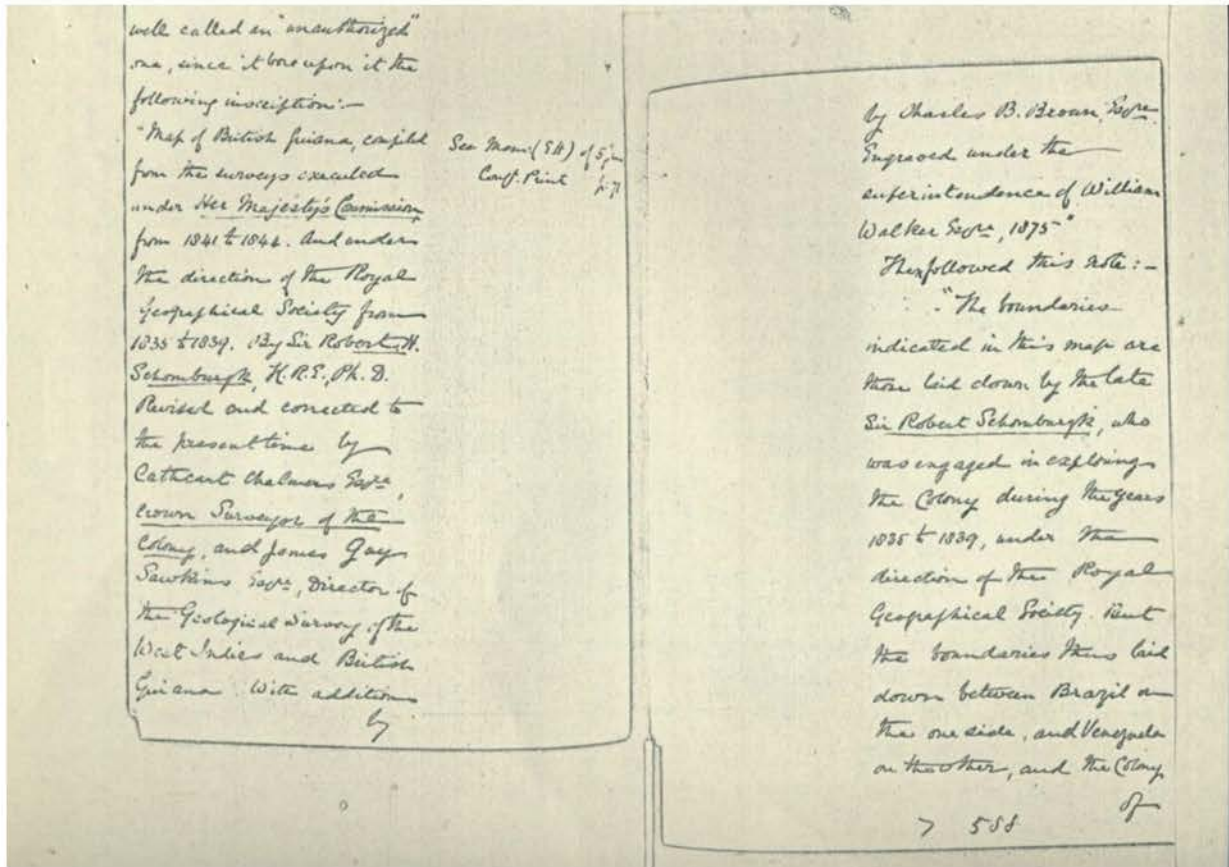 well called an "unauthorized"
one, since it bore upon it the
following inscription:—
"Map of British Guiana, compiled
from the surveys executed
under Her Majesty's Commission,
from 1841 to 1844. And under
the direction of the Royal
Geographical Society from
1835 to 1839. By Sir Robert H.
Schomburgk, K.R.E., Ph. D.
Revised and corrected to
the present time by
Cathcart Chalmers Esqre,
Crown Surveyor of the
Colony, and James Gay
Sawkins Esqre, Director of
the Geological Survey of the
West Indies and British
Guiana. With additions
by
See Mem: (E.H) of 5
Conf. Print
by Charles B. Brown, Esqre.
Engraved under the
superintendence of William
Walker Esqre, 1875"
Then followed this note:—
"The boundaries
indicated in this map are
those laid down by the late
Sir Robert Schomburgk, who
was engaged in exploring
the Colony during the years
1835 to 1839, under the
direction of the Royal
Geographical Society. But
the boundaries thus laid
down between Brazil on
the one side, and Venezuela
on the other, and the Colony
of
588